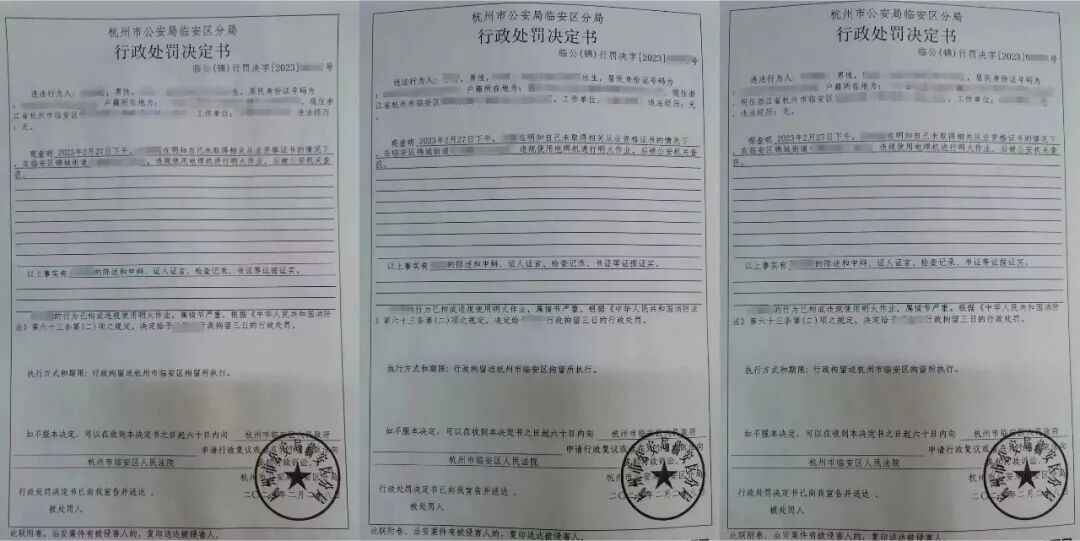 杭州市公安局临安区分局
行政处罚决定书
临公(锦)行罚决字[2023] 号
违法行为人: , 男性, 出生, 居民身份证号码为
: 户籍所在地为: , 现住浙
江省杭州市临安区 , 工作单位: 违法经历
: 无。
现查明 2023年2月27日下午, 在明知自己未取得相关从业资格证书的情况下
, 在临安区锦城街道 违规使用电焊机进行明火作业, 后被公安机关查
获。
以上事实有 的陈述和申辩、证人证言、检查记录、书证等证据证实。
的行为已构成违规使用明火作业, 属情节严重。根据《中华人民共和国消防
法》第六十三条第(二)项之规定, 决定给予 行政拘留三日的行政处罚。
执行方式和期限: 行政拘留送杭州市临安区拘留所执行。
如不服本决定, 可以在收到本决定书之日起六十日内向 杭州市临安区人民政府
申请行政复议或
杭州市临安区人民法院
行政处罚决定书已向我宣告并送达。
被处罚人
此联附卷。治安案件有被侵害人的, 复印送达被侵害人。
杭州市公安局临安区分局
行政处罚决定书
临公(锦)行罚决字[2023] 号
违法行为人: , 男性, 出生, 居民身份证号码为
: 户籍所在地为: , 现住浙
江省杭州市临安区 , 工作单位: 违法经历: 无
。
现查明 2023年2月27日下午, 在明知自己未取得相关从业资格证书的情况下
, 在临安区锦城街道 违规使用电焊机进行明火作业, 后被公安机关查
获。
以上事实有 的陈述和申辩、证人证言、检查记录、书证等证据证实。
的行为已构成违规使用明火作业, 属情节严重。根据《中华人民共和国消防法
》第六十三条第(二)项之规定, 决定给予 行政拘留三日的行政处罚。
执行方式和期限: 行政拘留送杭州市临安区拘留所执行。
如不服本决定, 可以在收到本决定书之日起六十日内向 杭州市临安区人民政府
申请行政复议或
杭州市临安区人民法院 行政诉讼。
行政处罚决定书已向我宣告并送达。
被处罚人
此联附卷。治安案件有被侵害人的, 复印送达被侵害人。
杭州市公安局临安区分局
行政处罚决定书
临公(锦)行罚决字[2023] 号
违法行为人: 男性, 出生, 居民身份证号码为
: 户籍所在地为:
, 现住浙江省杭州市临安区 , 工作单位:
违法经历: 无。
现查明 2023年2月27日下午, 在明知自己未取得相关从业资格证书的情况下
, 在临安区锦城街道 违规使用电焊机进行明火作业, 后被公安机关查
获。
以上事实有 的陈述和申辩、证人证言、检查记录、书证等证据证实。
的行为已构成违规使用明火作业, 属情节严重。根据《中华人民共和国消防法
》第六十三条第(二)项之规定, 决定给予 行政拘留三日的行政处罚。
执行方式和期限: 行政拘留送杭州市临安区拘留所执行。
如不服本决定, 可以在收到本决定书之日起六十日内向 杭州市临安区人民政府
申请行政复议或
杭州市临安区人民法院
行政处罚决定书已向我宣告并送达。
被处罚人
此联附卷。治安案件有被侵害人的, 复印送达被侵害人。